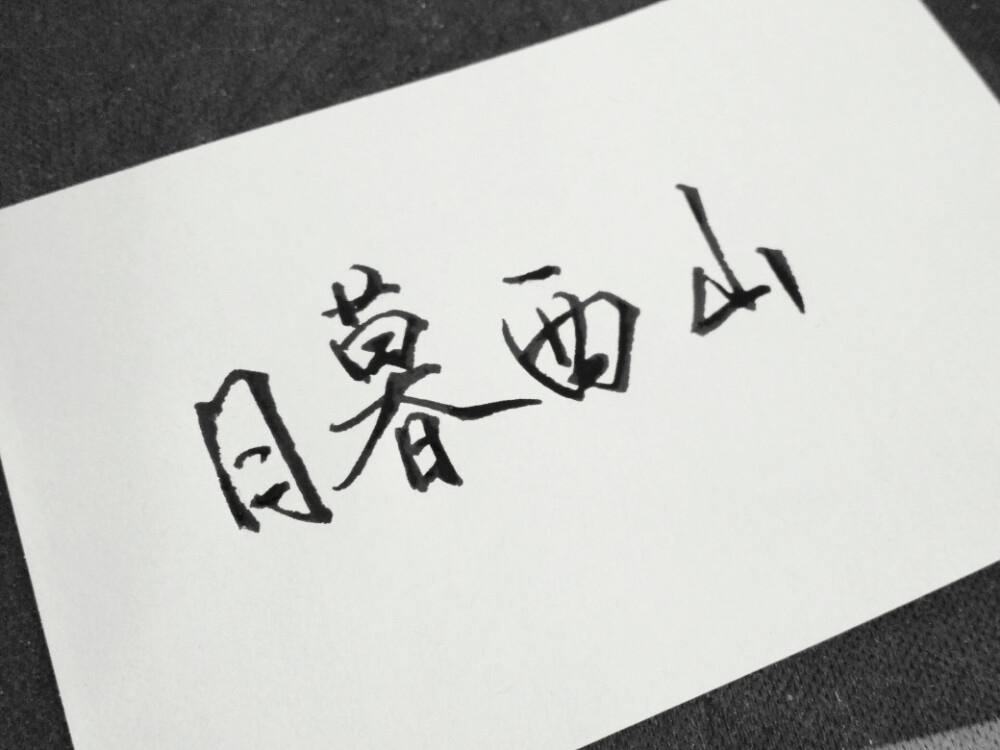 日暮西山